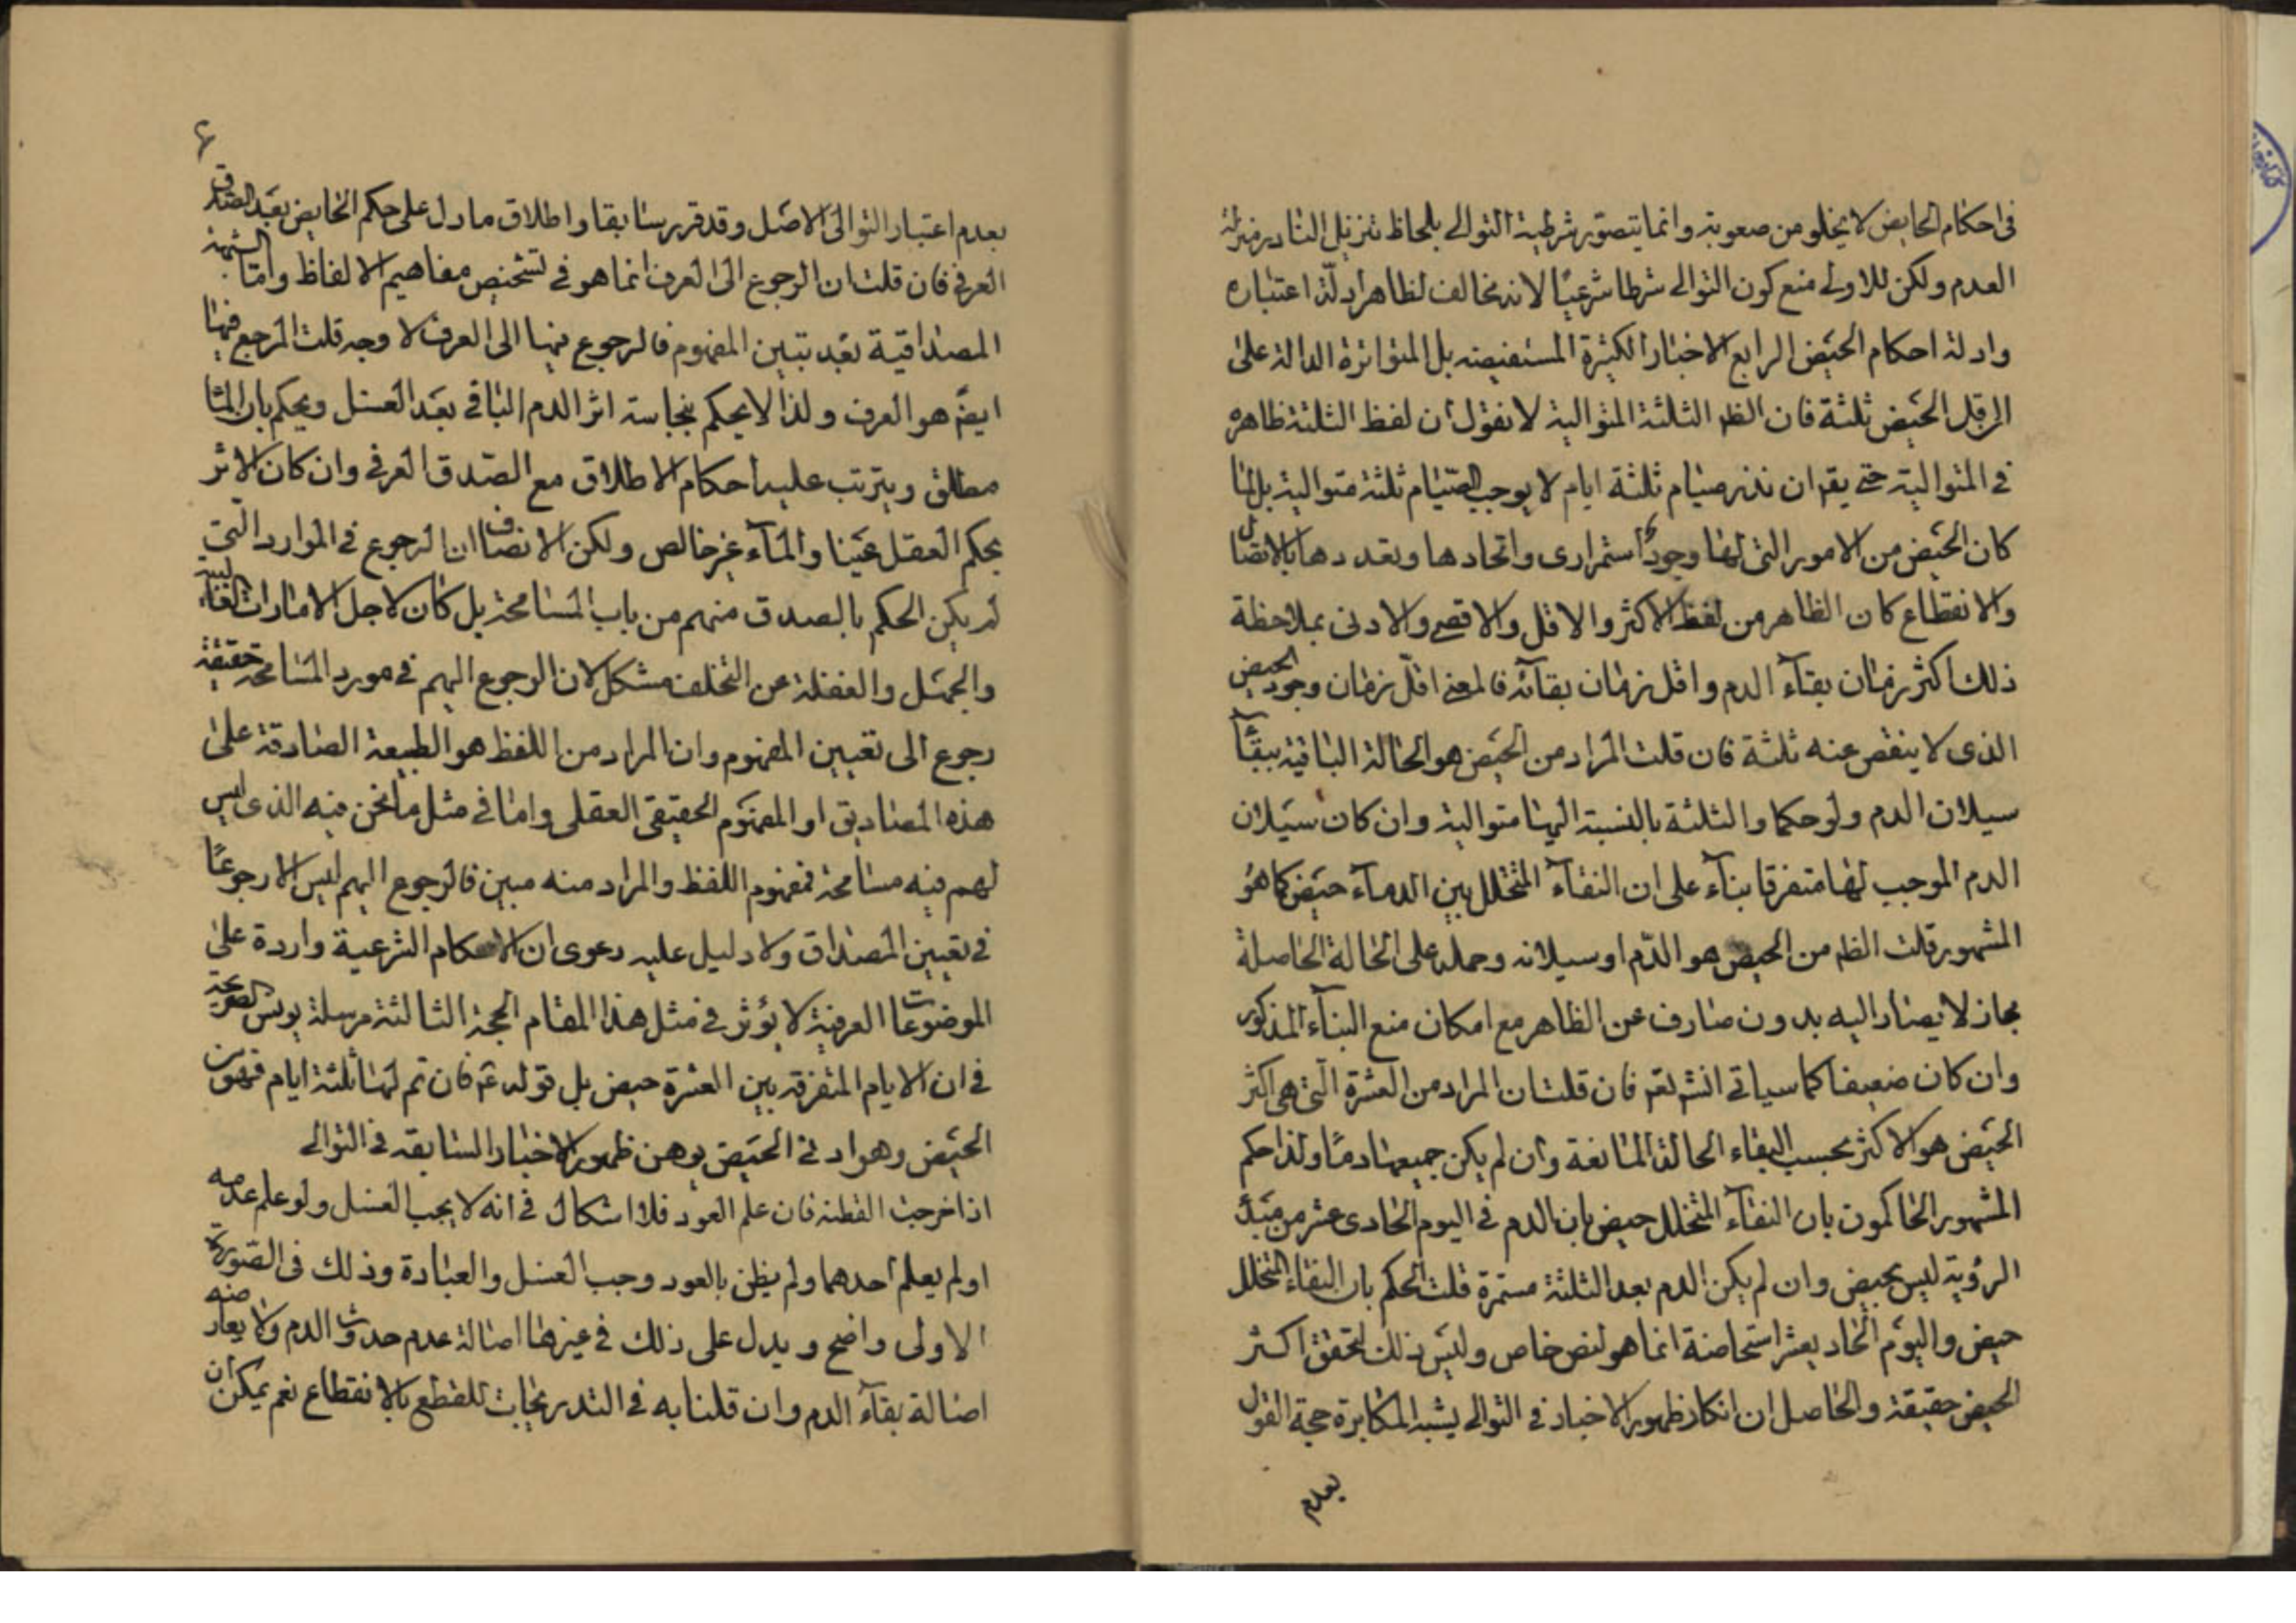 في احكام الحايض لا يخلو من صعوبة وانما يتصور شرطية التوالے بلحاظ تنزيل النادر منزلة
العدم ولكن للاولى منع كون التوالے شرطا شرعيا لانه مخالف لظاهر ادلة اعتباره
وادلة احكام الحيض الرابع الاخبار الكثيرة المستفيضه بل المتواترة الدالة على
ان اقل الحيض ثلثة فان الظم الثلثة المتوالية لا نقول ان لفظ الثلثة ظاهرة
في المتوالية حتى يقم ان نذر صيام ثلثة ايام لا يوجب الصيام ثلثة متوالية بل لما
كان الحيض من الامور التي لها وجود استمراری واتحادها وتعددها بالاتصال
والانقطاع كان الظاهر من لفظ الاكثر والاقل والاقصى والادنى بملاحظة
ذلك اكثر زمان بقاء الدم واقل زمان بقائه فالمعنى اقل زمان وجود الحيض
الذى لا ينقص عنه ثلثة فان قلت المراد من الحيض هو الحالة الباقية ببقاء
سيلان الدم ولو حكما والثلثة بالنسبة اليها متوالية وان كان سيلان
الدم الموجب لها متفرقا بناء على ان النقاء المتخلل بين الدماء حيض كما هو
المشهور قلت الظم من الحيض هو الدّم او سيلانه وحمله على الحالة الحاصلة
مجاز لا يصار اليه بدون صارف عن الظاهر مع امكان منع البناء المذكور
وان كان ضعيفا كما سياتى انشم تعم فان قلت ان المراد من العشرة التى هى اكثر
الحيض هو الاكثر بحسب البقاء الحالة المانعة وان لم يكن جميعها دما ولذا حكم
المشهور الحاكمون بان النقاء المتخلل حيض بان الدم في اليوم الحادى عشر من مبدء
الرؤية ليس بحيض وان لم يكن الدم بعد الثلثة مستمرة قلت الحكم بان النقاء المتخلل
حيض واليوم الحاد يعشر استحاضة انما هو لنص خاص وليس ذلك لتحقق اكثر
الحيض حقيقة والحاصل ان انكار ظهور الاخبار في التوالے يشبه المكابرة حجة القول
بعدم
۶
بعدم اعتبار التوالى الاصل وقد قرر سابقا واطلاق ما دل على حكم الحايض بعد الصدق
العرفى فان قلت ان الرجوع الى العرف انما هو فى تشخيص مفاهيم الالفاظ واما الشبهة
المصداقية بعد تبين المفهوم فالرجوع فيها الى العرف لا وجه قلت المرجع فيها
ايضً هو العرف ولذا لا يحكم بنجاسة اثر الدم الباقى بعد الغسل ويحكم بان الماء
مطلق ويترتب عليه احكام الاطلاق مع الصدق العرفى وان كان الاثر
بحكم العقل عينا والماء غير خالص ولكن الانصاف ان الرجوع في الموارد التى
لم يكن الحكم بالصدق منهم من باب المسامحة بل كان لاجل الامارات الفاسدة
والجهل والغفلة عن التخلف مشكل لان الرجوع اليهم فى مورد المسامحة حقيقة
رجوع الى تعيين المفهوم وان المراد من اللفظ هو الطبيعة الصادقة على
هذه المصاديق او المفهوم الحقيقى العقلى واما فى مثل ما نحن فيه الذى ليس
لهم فيه مسامحة فمفهوم اللفظ والمراد منه مبين فالرجوع اليهم ليس الا رجوعا
في تعيين المصداق ولا دليل عليه دعوى ان الاحكام الشرعية واردة على
الموضوعات العرفية لا يؤثر فى مثل هذا المقام الحجة الثالثة مرسلة يونس الصريحة
في ان الايام المتفرقه بين العشرة حيض بل قوله عم فان تم لها ثلثة ايام فهو من
الحيض وهو ادنى الحيض يوهن ظهور الاخبار السابقه في التوالے
اذا خرجت القطنه فان علم العود فلا اشكال في انه لا يجب الغسل ولو علم عدمه
او لم يعلم احدهما ولم يظن بالعود وجب الغسل والعبادة وذلك فى الصورة
الاولى واضح ويدل على ذلك فى غيرها اصالة عدم حدوث الدم ولا يعارضه
اصالة بقاء الدم وان قلنا به فى التدريجيات للقطع بالانقطاع نعم يمكن ان